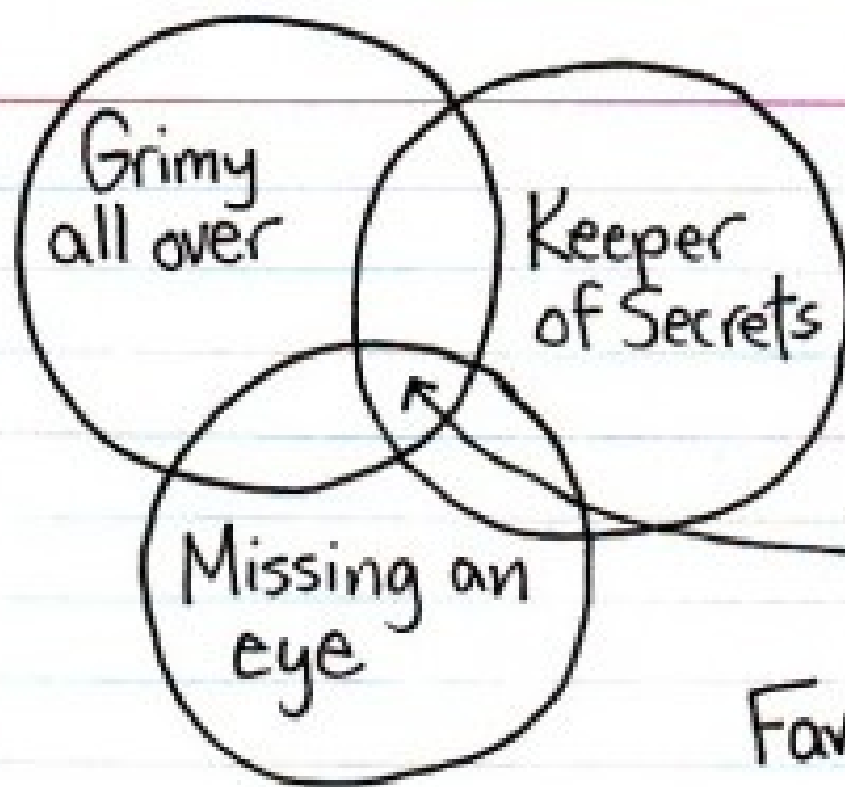 Grimy
all over
Keeper
of Secrets
Missing an
eye